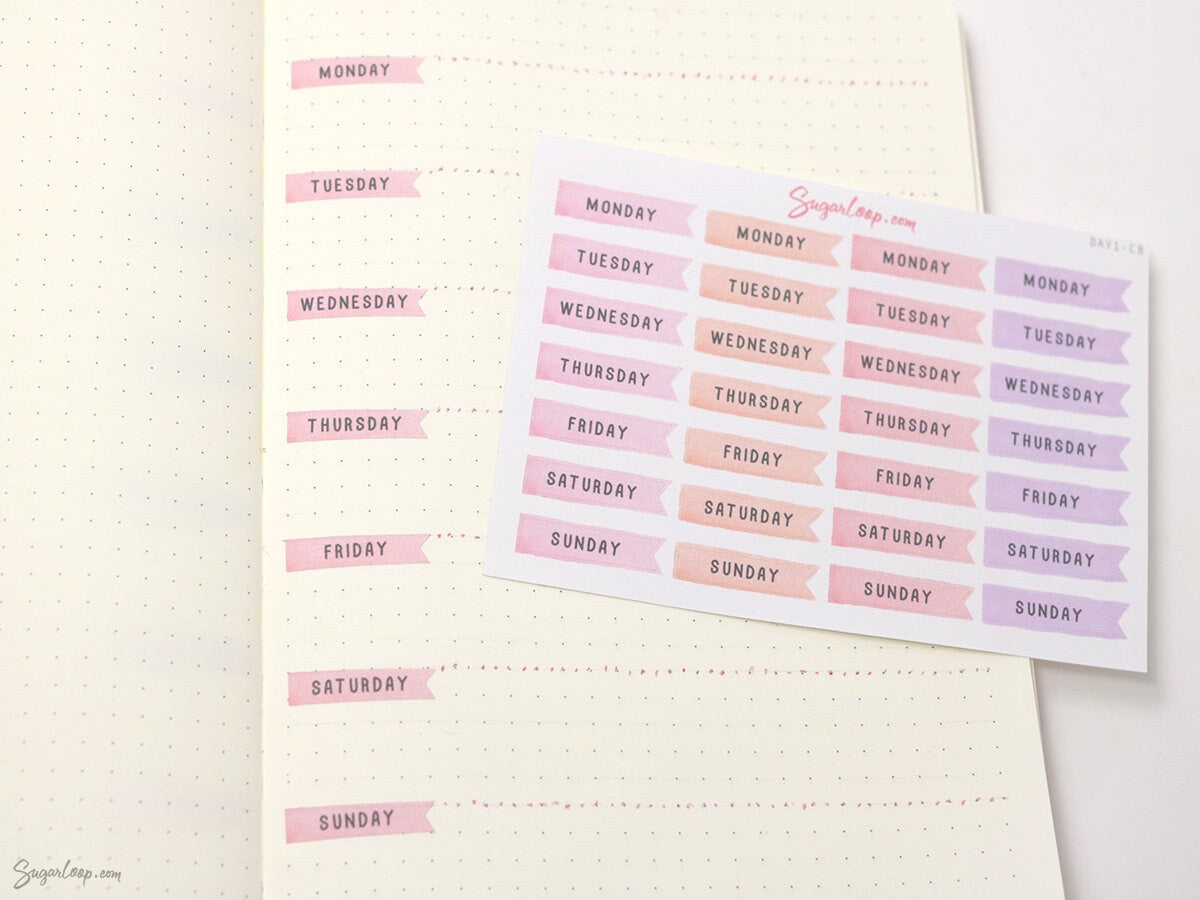 MONDAY
TUESDAY
WEDNESDAY
THURSDAY
FRIDAY
SATURDAY
SUNDAY
Sugarloop.com
DAY1-CB
MONDAY MONDAY MONDAY MONDAY
TUESDAY TUESDAY TUESDAY TUESDAY
WEDNESDAY WEDNESDAY WEDNESDAY WEDNESDAY
THURSDAY THURSDAY THURSDAY THURSDAY
FRIDAY FRIDAY FRIDAY FRIDAY
SATURDAY SATURDAY SATURDAY SATURDAY
SUNDAY SUNDAY SUNDAY SUNDAY
Sugarloop.com